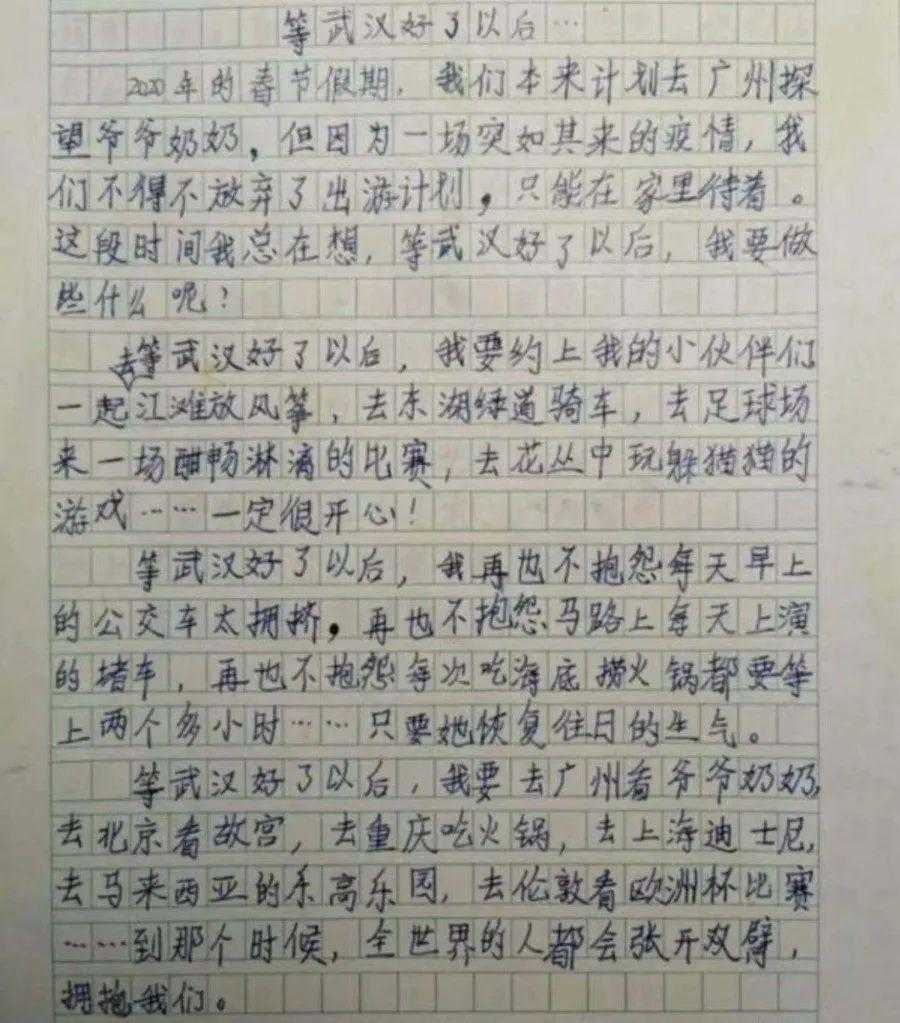 等武汉好了以后…
2020年的春节假期，我们本来计划去广州探
望爷爷奶奶，但因为一场突如其来的疫情，我
们不得不放弃了出游计划，只能在家里待着。
这段时间我总在想，等武汉好了以后，我要做
些什么呢？
等武汉好了以后，我要约上我的小伙伴们
一起去江滩放风筝，去东湖绿道骑车，去足球场
来一场酣畅淋漓的比赛，去花丛中玩躲猫猫的
游戏……一定很开心！
等武汉好了以后，我再也不抱怨每天早上
的公交车太拥挤，再也不抱怨马路上每天上演
的堵车，再也不抱怨每次吃海底捞火锅都要等
上两个多小时……只要她恢复往日的生气。
等武汉好了以后，我要去广州看爷爷奶奶，
去北京看故宫，去重庆吃火锅，去上海迪士尼，
去马来西亚的乐高乐园，去伦敦看欧洲杯比赛
……到那个时候，全世界的人都会张开双臂，
拥抱我们。